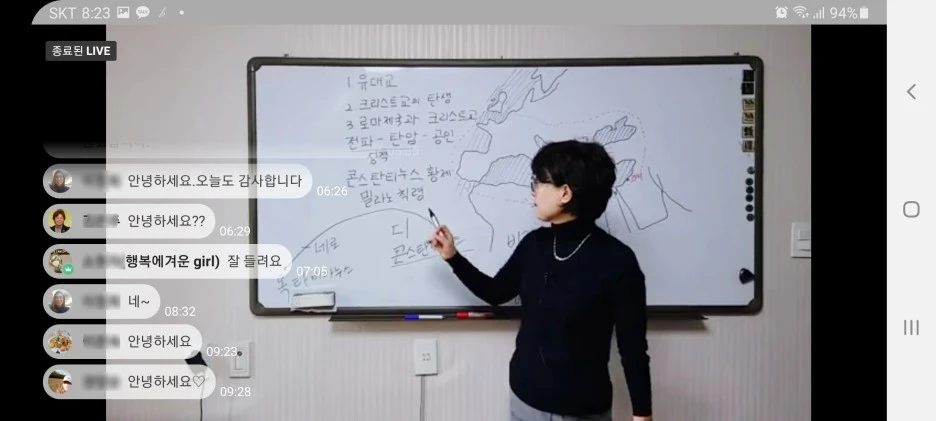 SKT 8:23
94%
종료된 LIVE
1. 유대교
2. 크리스트교의 탄생
3. 로마제국과 크리스트교
전파 - 탄압 - 공인
성격
콘스탄티누스 황제
밀라노 칙령
네로
디
안녕하세요.오늘도 감사합니다
06:26
안녕하세요??
06:29
(행복에겨운 girl) 잘 들려요
07:05
네~
08:32
안녕하세요
09:23
안녕하세요♡
09:28